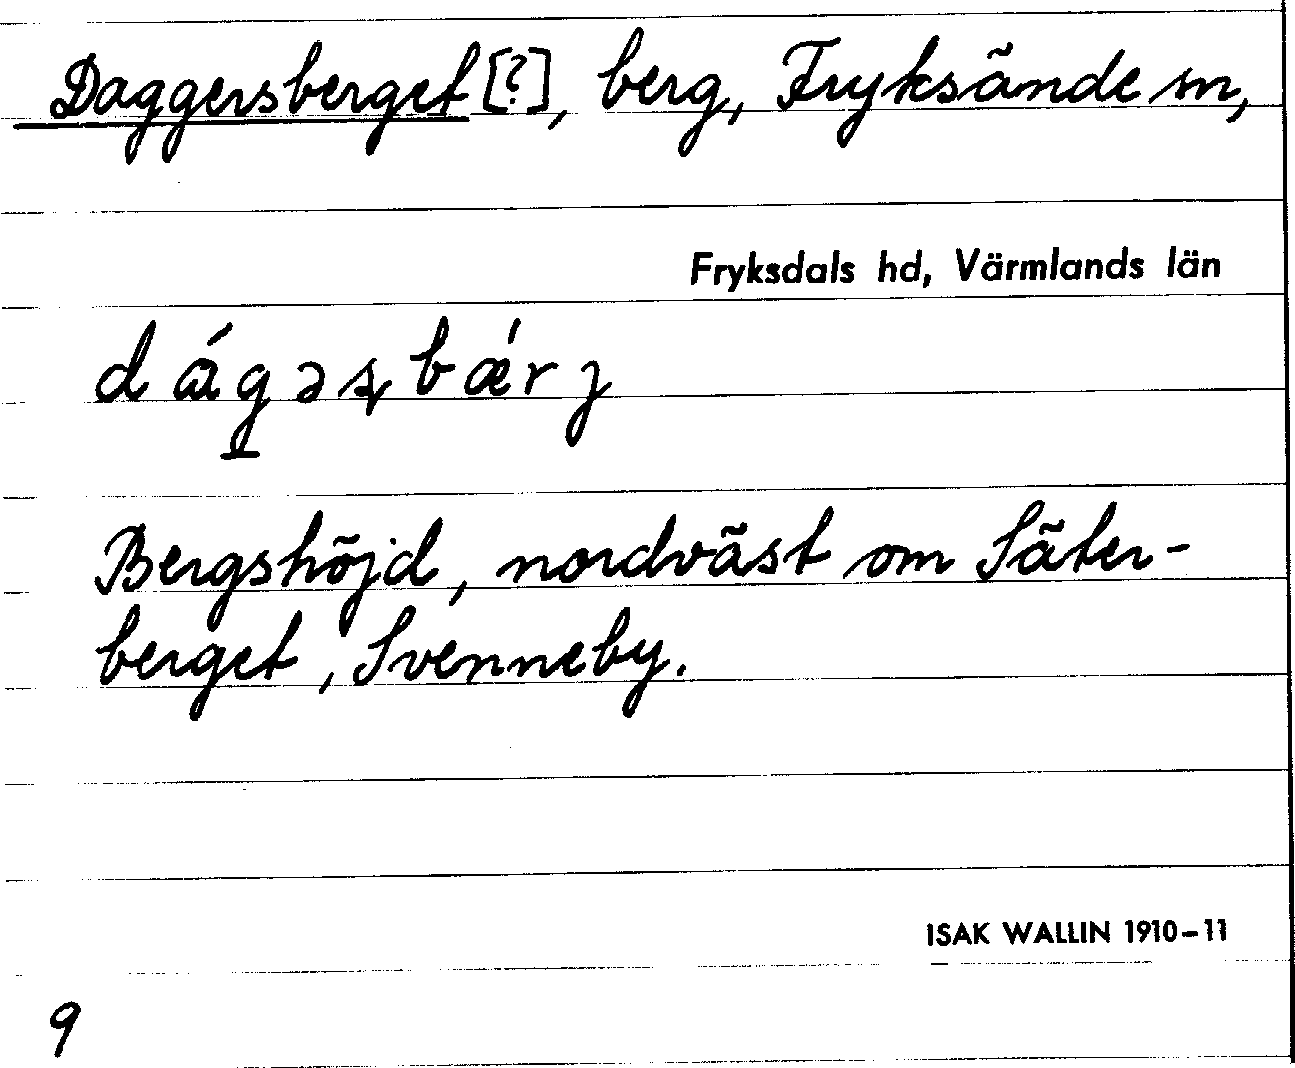 Daggersberget [?], berg, Fryksände sn,
Fryksdals hd, Värmlands län
dágəʂbǽrj
Bergshöjd, nordväst om Säter-
berget, Svenneby.
ISAK WALLIN 1910-11
9